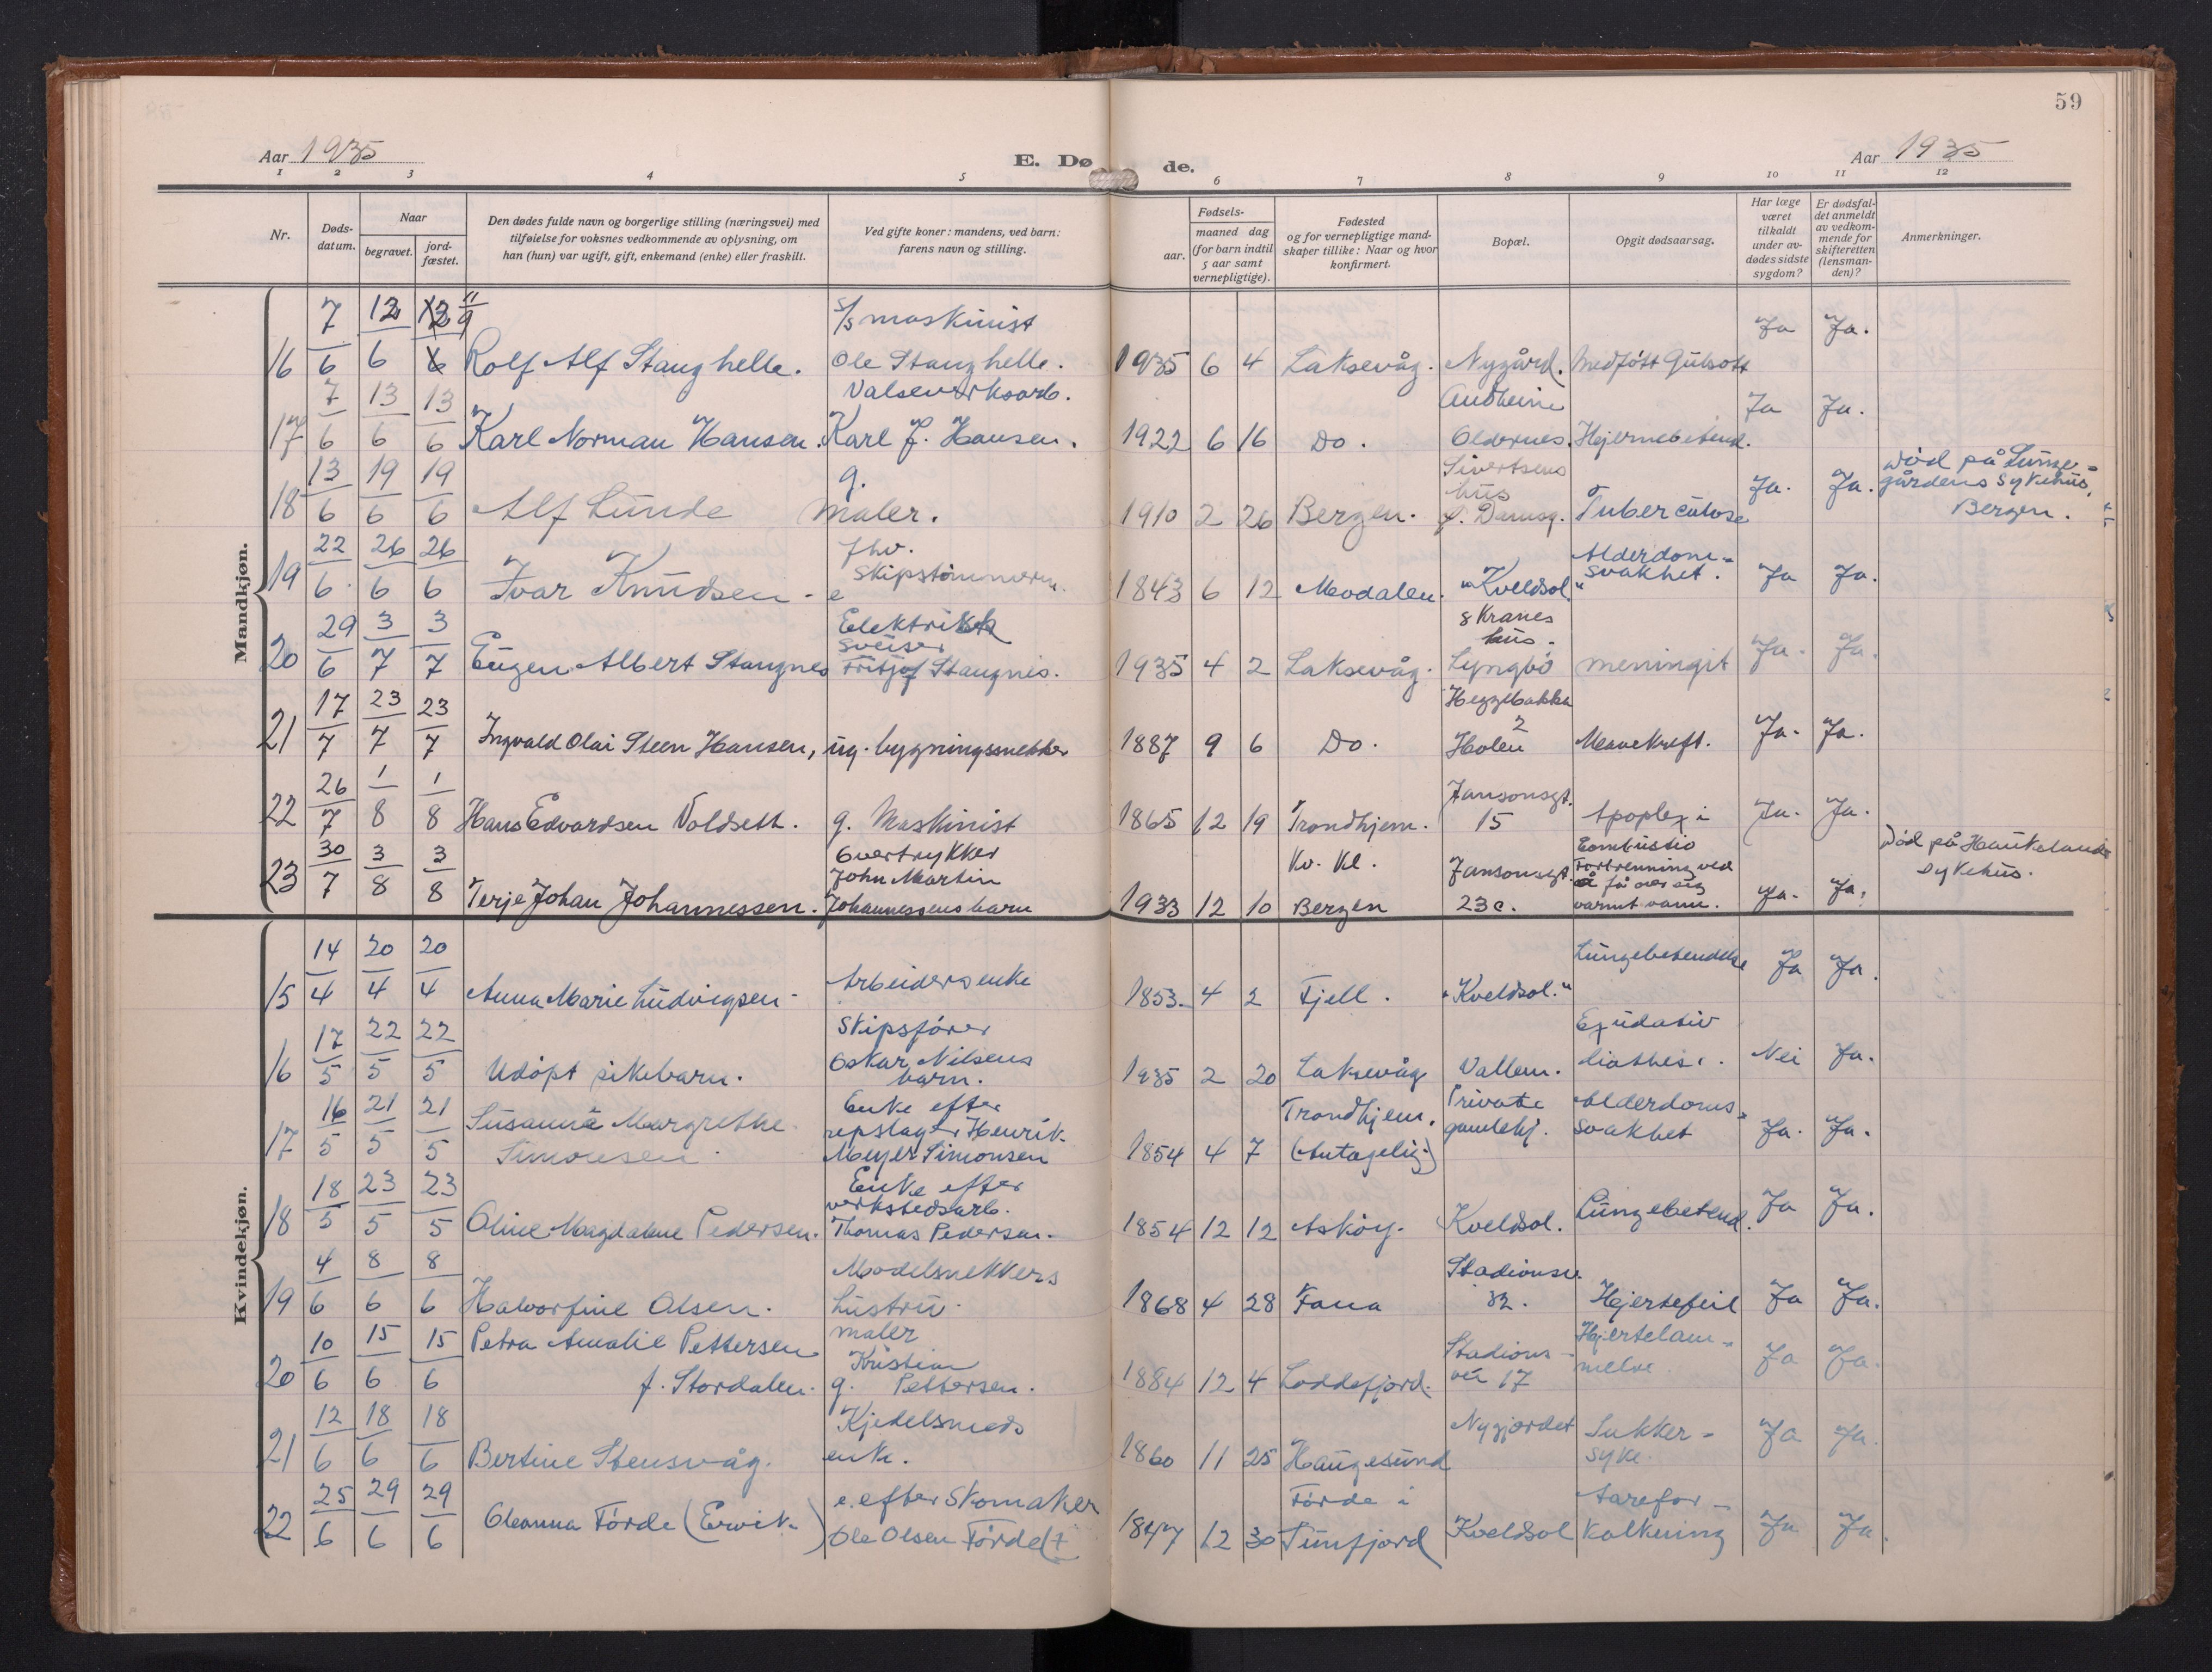 59
Aar 1935
E. Dø de.
Aar 1935
1 2 3 4 5 6 7 8 9 10 11 12
Nr.
Døds-
datum.
Naar
begravet.
jord-
fæstet.
Den dødes fulde navn og borgerlige stilling (næringsvei) med
tilføielse for voksnes vedkommende av oplysning, om
han (hun) var ugift, gift, enkemand (enke) eller fraskilt.
Ved gifte koner: mandens, ved barn:
farens navn og stilling.
Fødsels-
aar.
maaned dag
(for barn indtil
5 aar samt
vernepligtige).
Fødested
og for vernepligtige mand-
skaper tillike: Naar og hvor
konfirmert.
Bopæl.
Opgit dødsaarsag.
Har læge
været
tilkaldt
under av-
dødes sidste
sygdom?
Er dødsfal-
det anmeldt
av vedkom-
mende for
skifteretten
(lensman-
den)?
Anmerkninger.
Mandkjøn.
7 12 12 11/9 s/s maskinist Ja Ja.
16 6 6 6 Rolf Alf Stanghelle. Ole Stanghelle. 1935 6 4 Laksevåg. Nygård. Medfött Gulsott
7 13 13 Valseverksarb. Ja Ja.
17 6 6 6 Karl Norman Hansen. Karl J. Hansen. 1922 6 16 Do. Oldernes. Hjernebetend.
13 19 19 g. Sivertsens hus Ja. Ja. Död på Lunge-
gårdens Sykehus,
18 6 6 6 Alf Lunde Maler. 1910 2 26 Bergen. Damsg. Tuberculose Bergen.
22 26 26 fhv. Alderdom-
19 6 6 6 Ivar Knudsen - e Skipstömmerm. 1843 6 12 Modalen. "Kveldsol." svakhet. Ja Ja.
29 3 3 Elektrisk 8 Kranes
sveiser hus.
20 6 7 7 Eugen Albert Stangnes Fritjof Stangnes. 1935 4 2 Laksevåg. Lyngbö meningit Ja. Ja.
17 23 23 Heggebakken
2
21 7 7 7 Ingvald Olai Steen Hansen, ug. bygningssnekker 1887 9 6 Do. Holen Mavekreft. Ja. Ja.
26 1 1 Jansonsgt.
22 7 8 8 Hans Edvardsen Voldsett. g. Maskinist 1865 12 19 Trondhjem. 15 Apoplexi Ja. Ja.
30 3 3 Overtrykker Combustio Död på Haukelands
John Martin Kv. Kl. Jansonsgt. Forbrenning ved sykehus.
å få over sig
23 7 8 8 Terje Johan Johannessen. Johannessens barn 1933 12 10 Bergen 23c. varmt vann. Ja. Ja.
Kvindekjøn.
14 20 20 Lungebetendelse
15 4 4 4 Anna Marie Ludvigsen - Arbeiders enke 1853. 4 2 Fjell. "Kveldsol." Ja Ja.
17 22 22 Skipsförer Exudativ
16 5 5 5 Udöpt pikebarn. Oskar Nilsens 1935 2 20 Laksevåg Vallem. diathese. Nei Ja.
barn.
16 21 21 Susanna Margrethe Enke efter Trondhjem. Private Alderdoms-
17 5 5 5 Simonsen. repslager Henrik 1854 4 7 (Antagelig) gamlehj. svakhet Ja. Ja.
Meyer Simonsen
18 23 23 Enke efter
verkstedsarb.
18 5 5 5 Oline Magdalene Pedersen. Thomas Pedersen. 1854 12 12 Asköy. Kveldsol. Lungebetend. Ja Ja.
4 8 8 Modelsnekkers Stadionsv.
19 6 6 6 Halvorfine Olsen. hustru. 1868 4 28 Fana 32. Hjertefeil Ja Ja.
10 15 15 Petra Amalie Pettersen maler Stadions- Hjertelam-
Kristian
20 6 6 6 f. Stordalen. g. Pettersen. 1884 12 4 Loddefjord. vei 17 melse. Ja Ja.
12 18 18 Kjedelsmeds Nygjordet Sukker-
21 6 6 6 Bertine Stensvåg. enke. 1860 11 25 Haugesund syke. Ja Ja.
25 29 29 e. efter Skomaker Förde i Aarefor-
22 6 6 6 Oleanna Förde (Ervik) Ole Olsen Förde 1847 12 30 Sunfjord Kveldsol kalkning Ja Ja.